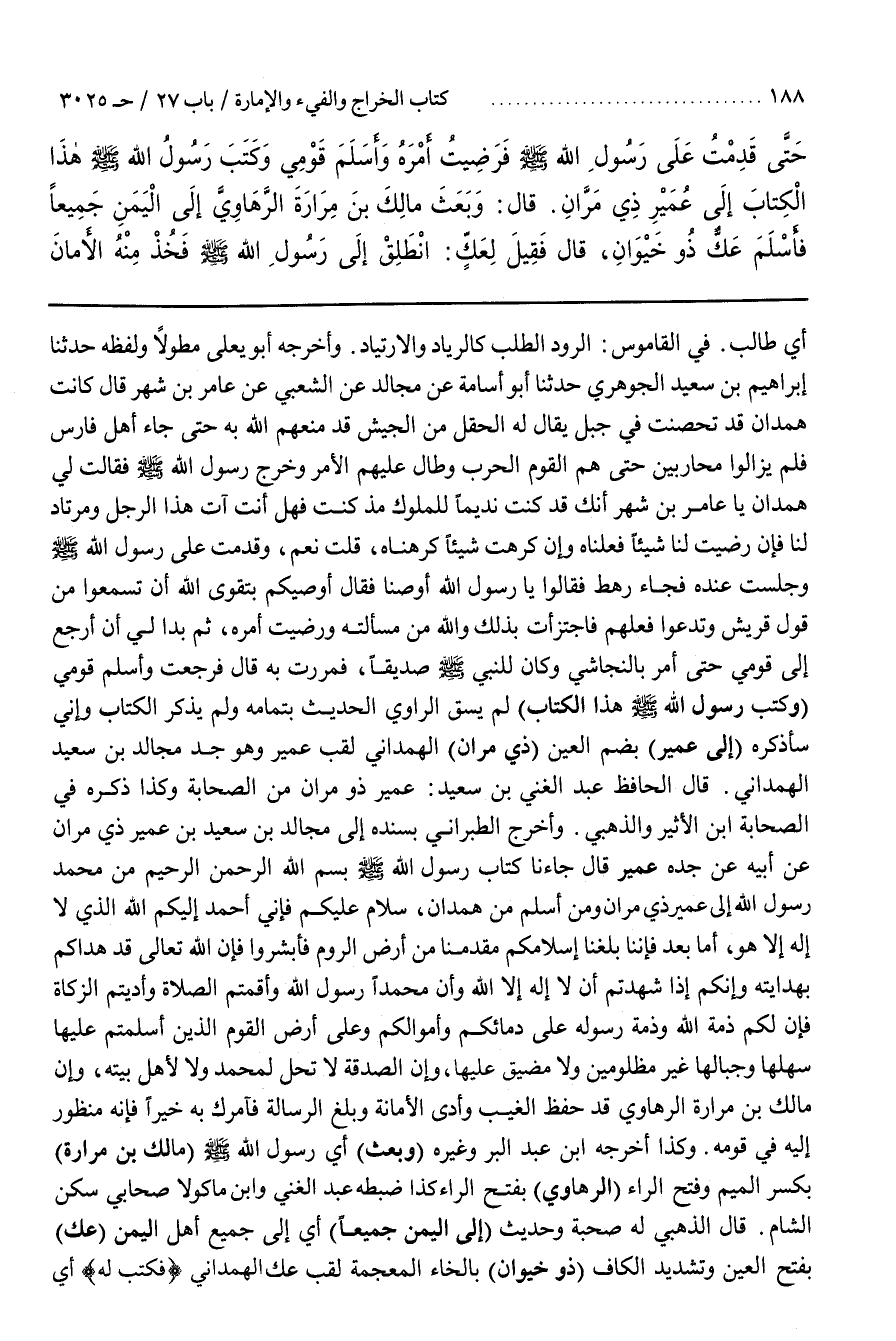 ١٨٨ .............................. كتاب الخراج والفيء والإمارة / باب ٢٧ / حـ ٣٠٢٥
حَتَّى قَدِمْتُ عَلَى رَسُولِ الله ﷺ فَرَضِيتُ أَمْرَهُ وَأَسْلَمَ قَوْمِي وَكَتَبَ رَسُولُ الله ﷺ هٰذَا
الْكِتَابَ إلَى عُمَيْرِ ذِي مَرَّانِ. قال: وَبَعَثَ مالِكَ بنَ مِرَارَةَ الرَّهَاوِيَّ إلَى الْيَمَنِ جَمِيعاً
فأَسْلَمَ عَكٌّ ذُو خَيْوَانِ، قال فَقِيلَ لِعَكٍّ: انْطَلِقْ إلَى رَسُولِ الله ﷺ فَخُذْ مِنْهُ الأمانَ
أي طالب. في القاموس: الرود الطلب كالرياد والارتياد. وأخرجه أبو يعلى مطولاً ولفظه حدثنا
إبراهيم بن سعيد الجوهري حدثنا أبو أسامة عن مجالد عن الشعبي عن عامر بن شهر قال كانت
همدان قد تحصنت في جبل يقال له الحقل من الجيش قد منعهم الله به حتى جاء أهل فارس
فلم يزالوا محاربين حتى هم القوم الحرب وطال عليهم الأمر وخرج رسول الله ﷺ فقالت لي
همدان يا عامر بن شهر أنك قد كنت نديماً للملوك مذ كنت فهل أنت آت هذا الرجل ومرتاد
لنا فإن رضيت لنا شيئاً فعلناه وإن كرهت شيئاً كرهناه، قلت نعم، وقدمت على رسول الله ﷺ
وجلست عنده فجاء رهط فقالوا يا رسول الله أوصنا فقال أوصيكم بتقوى الله أن تسمعوا من
قول قريش وتدعوا فعلهم فاجتزأت بذلك والله من مسألته ورضيت أمره، ثم بدا لي أن أرجع
إلى قومي حتى أمر بالنجاشي وكان للنبي ﷺ صديقاً، فمررت به قال فرجعت وأسلم قومي
(وكتب رسول الله ﷺ هذا الكتاب) لم يسق الراوي الحديث بتمامه ولم يذكر الكتاب وإني
سأذكره (إلى عمير) بضم العين (ذي مران) الهمداني لقب عمير وهو جد مجالد بن سعيد
الهمداني. قال الحافظ عبد الغني بن سعيد: عمير ذو مران من الصحابة وكذا ذكره في
الصحابة ابن الأثير والذهبي. وأخرج الطبراني بسنده إلى مجالد بن سعيد بن عمير ذي مران
عن أبيه عن جده عمير قال جاءنا كتاب رسول الله ﷺ بسم الله الرحمن الرحيم من محمد
رسول الله إلى عمير ذي مران ومن أسلم من همدان، سلام عليكم فإني أحمد إليكم الله الذي لا
إله إلا هو، أما بعد فإننا بلغنا إسلامكم مقدمنا من أرض الروم فأبشروا فإن الله تعالى قد هداكم
بهدايته وإنكم إذا شهدتم أن لا إله إلا الله وأن محمداً رسول الله وأقمتم الصلاة وأديتم الزكاة
فإن لكم ذمة الله وذمة رسوله على دمائكم وأموالكم وعلى أرض القوم الذين أسلمتم عليها
سهلها وجبالها غير مظلومين ولا مضيق عليها، وإن الصدقة لا تحل لمحمد ولا لأهل بيته، وإن
مالك بن مرارة الرهاوي قد حفظ الغيب وأدى الأمانة وبلغ الرسالة فآمرك به خيراً فإنه منظور
إليه في قومه. وكذا أخرجه ابن عبد البر وغيره (وبعث) أي رسول الله ﷺ (مالك بن مرارة)
بكسر الميم وفتح الراء (الرهاوي) بفتح الراء كذا ضبطه عبد الغني وابن ماكولا صحابي سكن
الشام. قال الذهبي له صحبة وحديث (إلى اليمن جميعاً) أي إلى جميع أهل اليمن (عك)
بفتح العين وتشديد الكاف (ذو خيوان) بالخاء المعجمة لقب عك الهمداني ﴿فكتب له﴾ أي